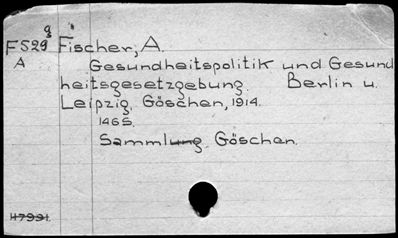 g "
F529 Fischer, A.
A Gesundheitspolitik und Gesund
heitsgesetzgebung. Berlin u.
Leipzig. Göschen, 1914.
146S.
Sammlung Göschen.
47991.